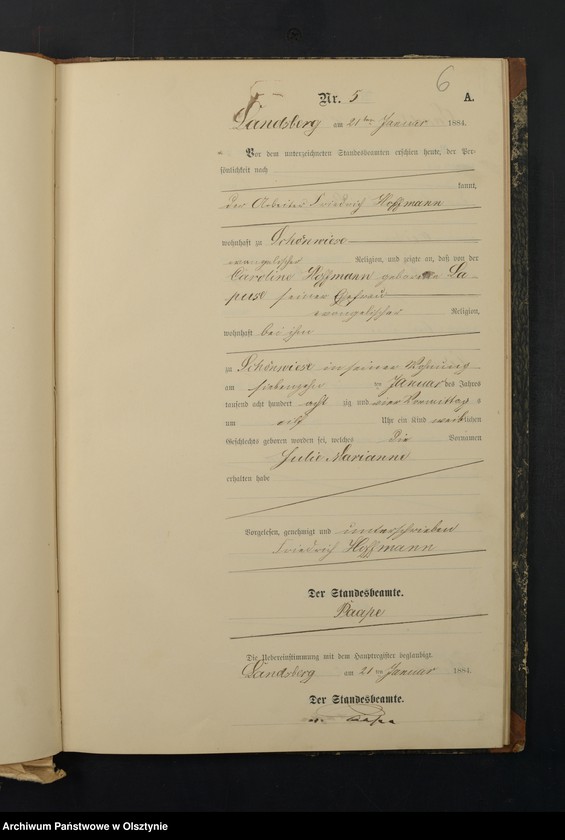 6
Nr. 5 A.
Landsberg am 21ten Januar 1884.
Vor dem unterzeichneten Standesbeamten erschien heute, der Per-
sönlichkeit nach
kannt,
der Arbeiter Friedrich Hoffmann
wohnhaft zu Schönwiese
evangelischer Religion, und zeigte an, daß von der
Caroline Hoffmann geborene La-
seiner Ehefrau
evangelischer Religion,
wohnhaft bei ihm
zu Schönwiese in seiner Wohnung
am siebenzehn ten Januar des Jahres
tausend acht hundert acht zig und vier Vormittag s
um elf Uhr ein Kind weiblichen
Geschlechts geboren worden sei, welches die Vornamen
Julie Marianne
erhalten habe
Vorgelesen, genehmigt und unterschrieben
Friedrich Hoffmann
Der Standesbeamte.
Paape
Die Uebereinstimmung mit dem Hauptregister beglaubigt.
Landsberg am 21 ten Januar 1884.
Der Standesbeamte.
Paape
Archiwum Państwowe w Olsztynie